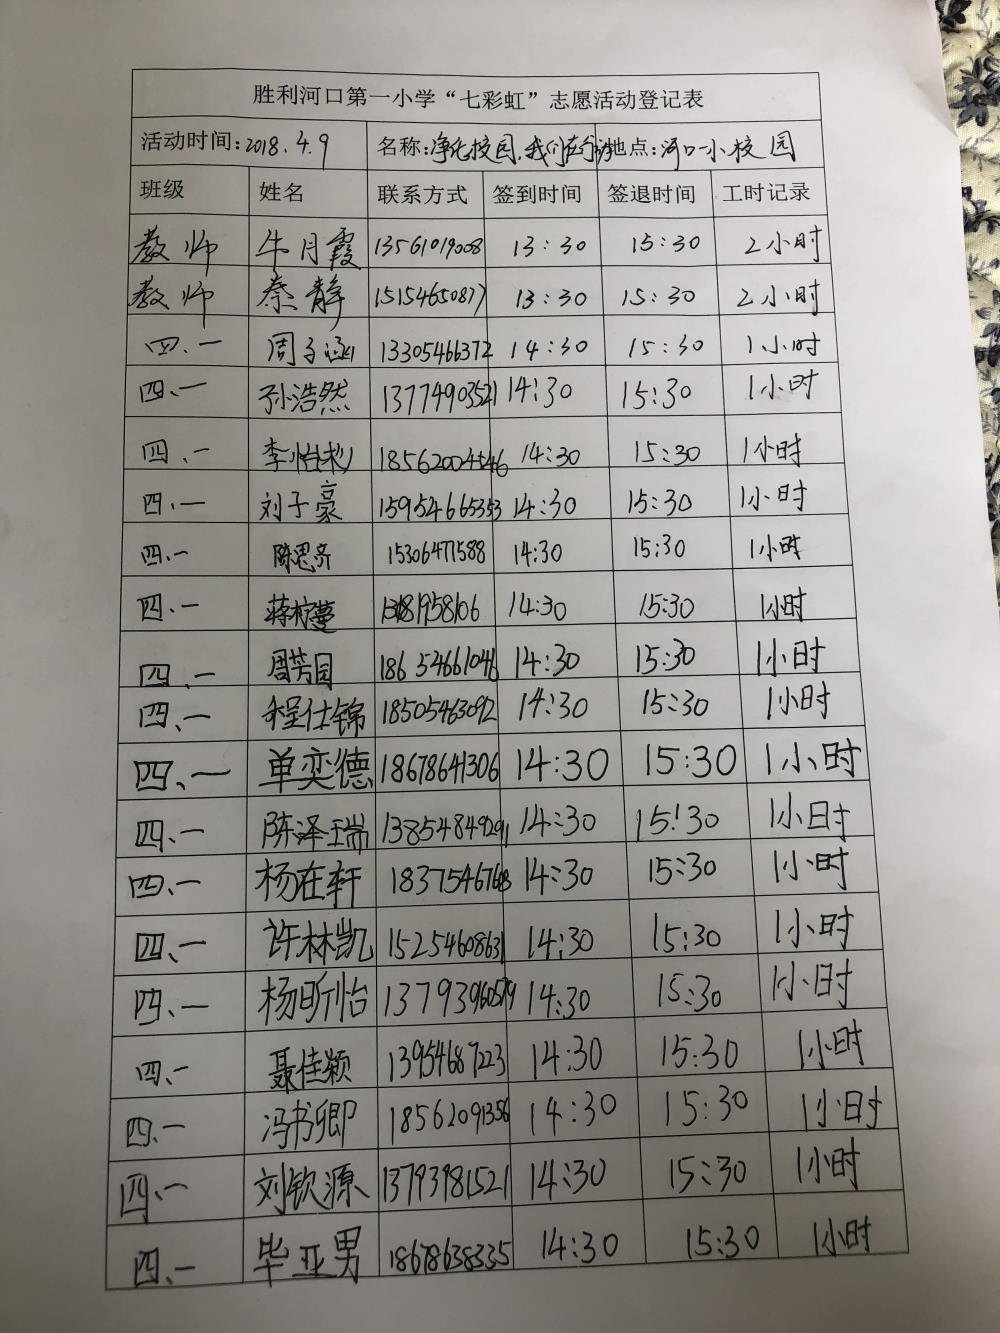 胜利河口第一小学“七彩虹”志愿活动登记表
活动时间:2018.4.9 名称:净化校园,我们在行动 地点:河口一小校园
班级 姓名 联系方式 签到时间 签退时间 工时记录
教师 牛月霞 13561019008 13:30 15:30 2小时
教师 蔡静 15154650877 13:30 15:30 2小时
四.一 周子涵 13305466372 14:30 15:30 1小时
四.一 孙浩然 13774903521 14:30 15:30 1小时
四.一 李怡彬 18562004546 14:30 15:30 1小时
四.一 刘子豪 15954665353 14:30 15:30 1小时
四.一 陈思齐 15306471588 14:30 15:30 1小时
四.一 蒋柠蔓 14:30 15:30 1小时
四.一 周芳园 18654661046 14:30 15:30 1小时
四、一 程仕锦 18505463092 14:30 15:30 1小时
四、一 单奕德 18678641306 14:30 15:30 1小时
四.一 陈泽瑞 14:30 15:30 1小时
四.一 杨在轩 14:30 15:30 1小时
四、一 许林凯 15254608631 14:30 15:30 1小时
四、一 杨昕怡 14:30 15:30 1小时
四.一 聂佳颖 13954687223 14:30 15:30 1小时
四.一 冯书卿 18562091356 14:30 15:30 1小时
四、一 刘钦源 13793981521 14:30 15:30 1小时
四.一 毕亚男 18678638335 14:30 15:30 1小时